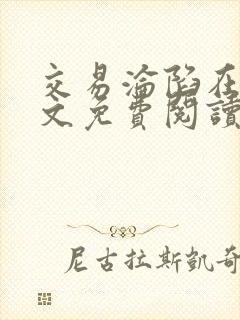 交易淪陷在
文免費閱讀
尼古拉斯凱奇